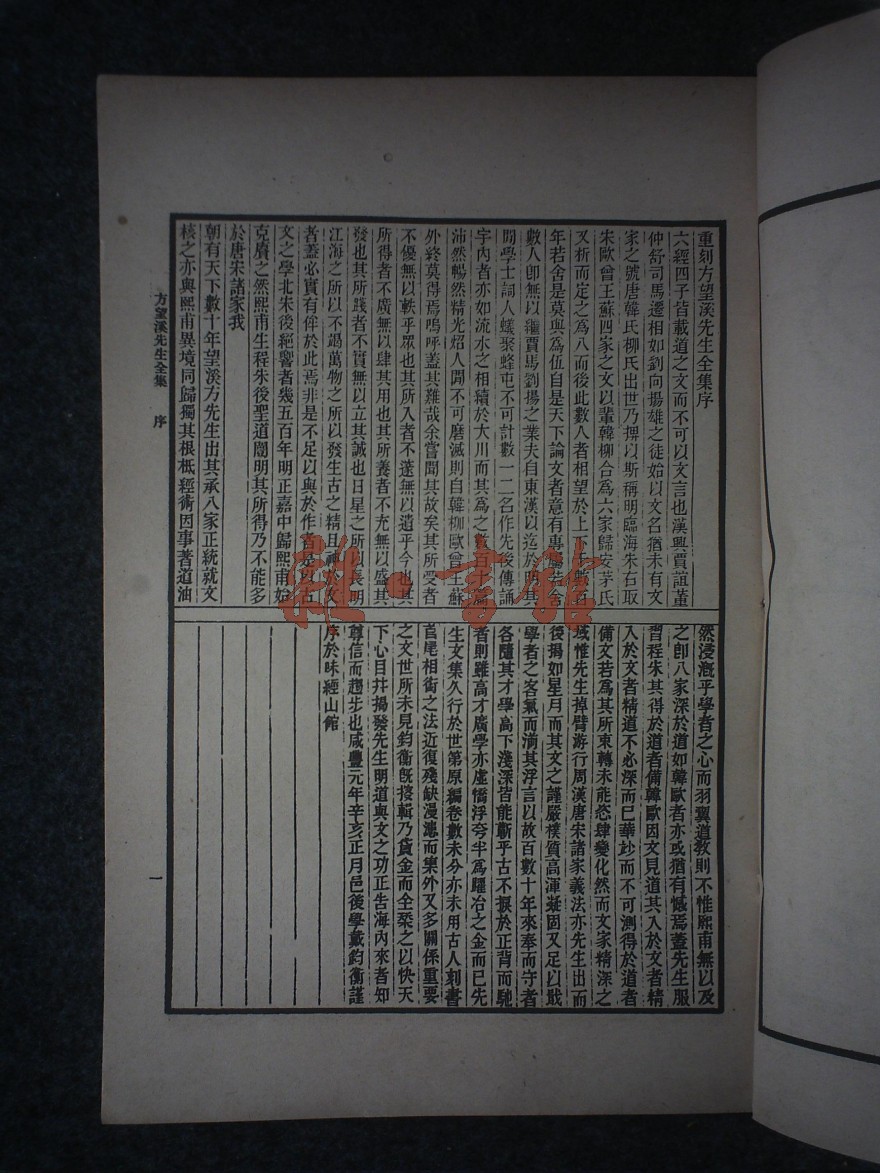 重刻方望溪先生全集序
六經四子皆載道之文而不可以文言也漢興賈誼董
仲舒司馬遷相如劉向揚雄之徒始以文名猶未有文
家之號唐韓氏柳氏出世乃撰以斯稱明臨海朱右取
朱歐曾王蘇四家之文以輩韓柳合為六家歸安茅氏
又析而定之為八而後此數人者相望於上下千數百
年若舍是莫與為伍自是天下論文者意有專屬若舍
數人卽無以繼賈馬劉揚之業夫自東漢以迄於明其
閒學士詞人蠭聚蜂屯不可計數一二名作先後傳誦
宇內者亦如流水之相續於大川而其為之數百十篇
沛然暢然精光炤人閒不可磨滅則自韓柳歐曾王蘇
外終莫得焉嗚呼蓋其難哉余嘗聞其故矣其所受者
不優無以軼乎眾也其所入者不邃無以遺乎今也其
所得者不廣無以肆其用也其所養者不充無以盛其
發也其所踐者不實無以立其誠也日星之所以長明
江海之所以不竭萬物之所以發生古之精且神於文
者蓋必實有侔於此焉非是不足以與於作者是以古
文之學北宋後絕響者幾五百年明正嘉中歸熙甫始
克賡之然熙甫生程朱後聖道闡明其所得乃不能多
於唐宋諸家我
朝有天下數十年望溪方先生出其承八家正統就文
核之亦與熙甫異境同歸獨其根柢經術因事著道油
然浸溉乎學者之心而羽翼道教則不惟熙甫無以及
之卽八家深於道如韓歐者亦或猶有憾焉蓋先生服
習程朱其得於道者備韓歐因文見道其入於文者精
入於文者精道不必深而已華妙而不可測得於道者
備文若為其所束轉未能恣肆變化然而文家精深之
域惟先生掉臂游行周漢唐宋諸家義法亦先生出而
後揚如星月而其文之謹嚴樸質高渾凝固又足以戢
學者之客氣而湔其浮言以故百數十年來奉而守者
各隨其才學高下淺深皆能蘄乎古不捩於正背而馳
者則雖高才廣學亦虛憍浮夸半為躍冶之金而已先
生文集久行於世第原編卷數未分亦未用古人刻書
首尾相銜之法近復殘缺漫漶而集外又多關係重要
之文世所未見鈞衡旣搜輯乃貸金而全槧之以快天
下心目幷揚發先生明道與文之功正告海內來者知
尊信而趨步也咸豐元年辛亥正月邑後學戴鈞衡謹
序於味經山館
方望溪先生全集 序
一
雜書館